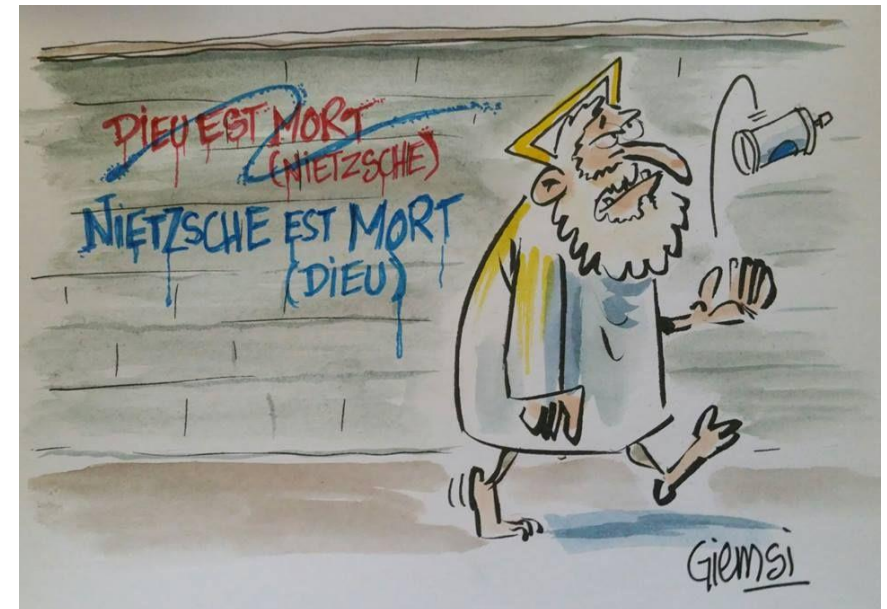 DIEU EST MORT
(NIETZSCHE)
NIETZSCHE EST MORT
(DIEU)
Giemsi